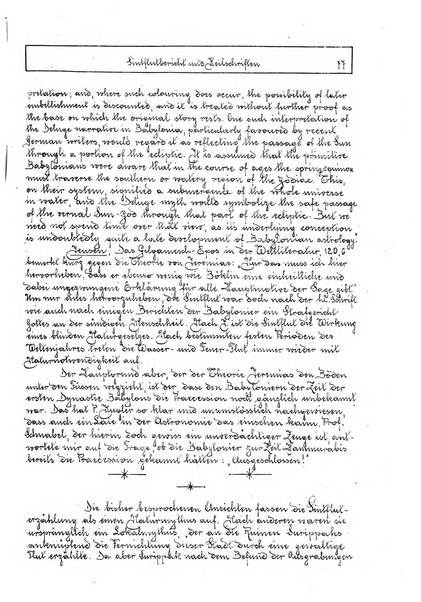 Sintflutbericht und Zeitschriften 77
pretation; and, where such colouring does occur, the possibility of later
embellishment is discounted, and it is treated without further proof as
the base on which the original story rests. One such interpretation of
the Deluge narrative in Babylonia, particularly favoured by recent
German writers, would regard it as reflecting the passage of the Sun
through a portion of the ecliptic. It is assumed that the primitive
Babylonians were aware that in the course of ages the spring equinox
must traverse the southern or watery region of the zodiac. This,
on their system, signified a submergence of the whole universe
in water, and the Deluge myth would symbolize the safe passage
of the vernal Sun-god through that part of the ecliptic. But we
need not spend time over that view, as its underlying conception
is undoubtedly quite a late development of Babylonian astrology."
Jensen, Das Gilgamesch-Epos in der Weltliteratur, 120,6
bemerkt kurz gegen die Theorie von Jeremias: das muss ich hier
hervorheben, dass er ebenso wenig wie Böklin eine einheitliche und
dabei ungezwungene Erklärung für alle Hauptmotive der Sage gibt."
Um nur eines hervorzuheben, die Sintflut war doch nach der hl. Schrift
wie auch nach einigen Berichten der Babylonier ein Strafgericht
Gottes an der sündigen Menschheit. Nach J. ist die Sintflut die Wirkung
eines blinden Naturgesetzes. Nach bestimmten festen Perioden des
Weltenjahres treten die Wasser- und Feuer-Flut immer wieder mit
Naturnotwendigkeit auf.
Der Hauptgrund aber, der der Theorie Jeremias den Boden
unter den Füssen wegzieht ist der, dass den Babyloniern der Zeit der
ersten Dynastie Babylons die Praecession noch gänzlich unbekannt
war. Das hat P. Kugler so klar und unumstösslich nachgewiesen,
dass auch ein Laie in der Astronomie das einsehen kann. Prof.
Schnabel, der hierin doch gewiss ein unverdächtiger Zeuge ist ant-
wortete mir auf die Frage, ob die Babylonier zur Zeit Hammurabis
bereits die Praecession gekannt hätten: "Ausgeschlossen!"
Die bisher besprochenen Ansichten fassen die Sintflut-
erzählung als einen Naturmythus auf. Nach anderen wäre sie
ursprünglich ein Lokalmythus, der an die Ruinen Surippaks
anknüpfend die Vernichtung dieser Stadt durch eine gewaltige
Flut erzählte. Da aber Surippak nach dem Befund der Ausgrabungen